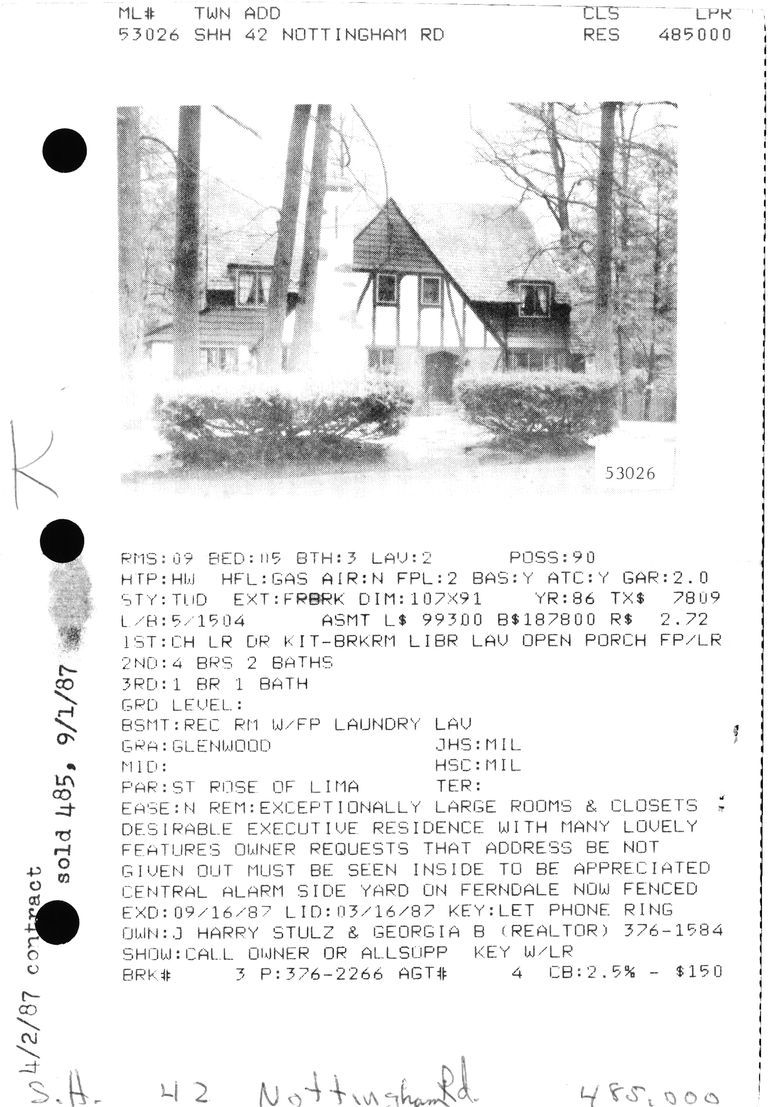 ML# TWN ADD CLS LPR
53026 SHH 42 NOTTINGHAM RD RES 485000
53026
K
RMS:09 BED:05 BTH:3 LAV:2 POSS:90
HTP:HW HFL:GAS AIR:N FPL:2 BAS:Y ATC:Y GAR:2.0
STY:TUD EXT:FRBRK DIM:107X91 YR:86 TX$ 7809
L/B:5/1504 ASMT L$ 99300 B$187800 R$ 2.72
1ST:CH LR DR KIT-BRKRM LIBR LAV OPEN PORCH FP/LR
2ND:4 BRS 2 BATHS
3RD:1 BR 1 BATH
GRD LEVEL:
BSMT:REC RM W/FP LAUNDRY LAV
GRA:GLENWOOD JHS:MIL
MID: HSC:MIL
PAR:ST ROSE OF LIMA TER:
EASE:N REM:EXCEPTIONALLY LARGE ROOMS & CLOSETS
DESIRABLE EXECUTIVE RESIDENCE WITH MANY LOVELY
FEATURES OWNER REQUESTS THAT ADDRESS BE NOT
GIVEN OUT MUST BE SEEN INSIDE TO BE APPRECIATED
CENTRAL ALARM SIDE YARD ON FERNDALE NOW FENCED
EXD:09/16/87 LID:03/16/87 KEY:LET PHONE RING
OWN:J HARRY STULZ & GEORGIA B (REALTOR) 376-1584
SHOW:CALL OWNER OR ALLSUPP KEY W/LR
BRK# 3 P:376-2266 AGT# 4 CB:2.5% - $150
4/2/87 contract
sold 485, 9/1/87
S.H. 42 Nottingham Rd. 485,000